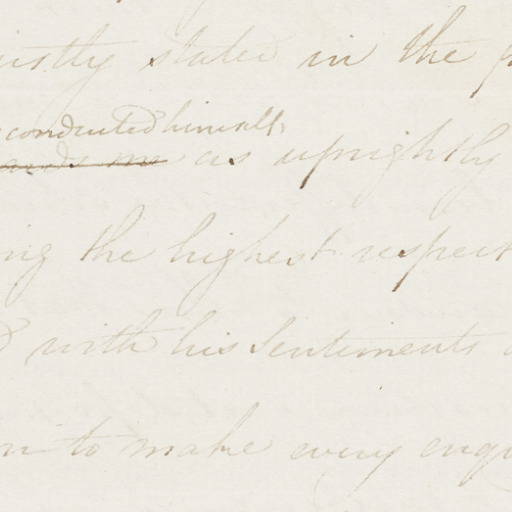 justly stated in the
conducted himself
as uprightly
ing the highest respect
with his Sentiments
to make every enqu